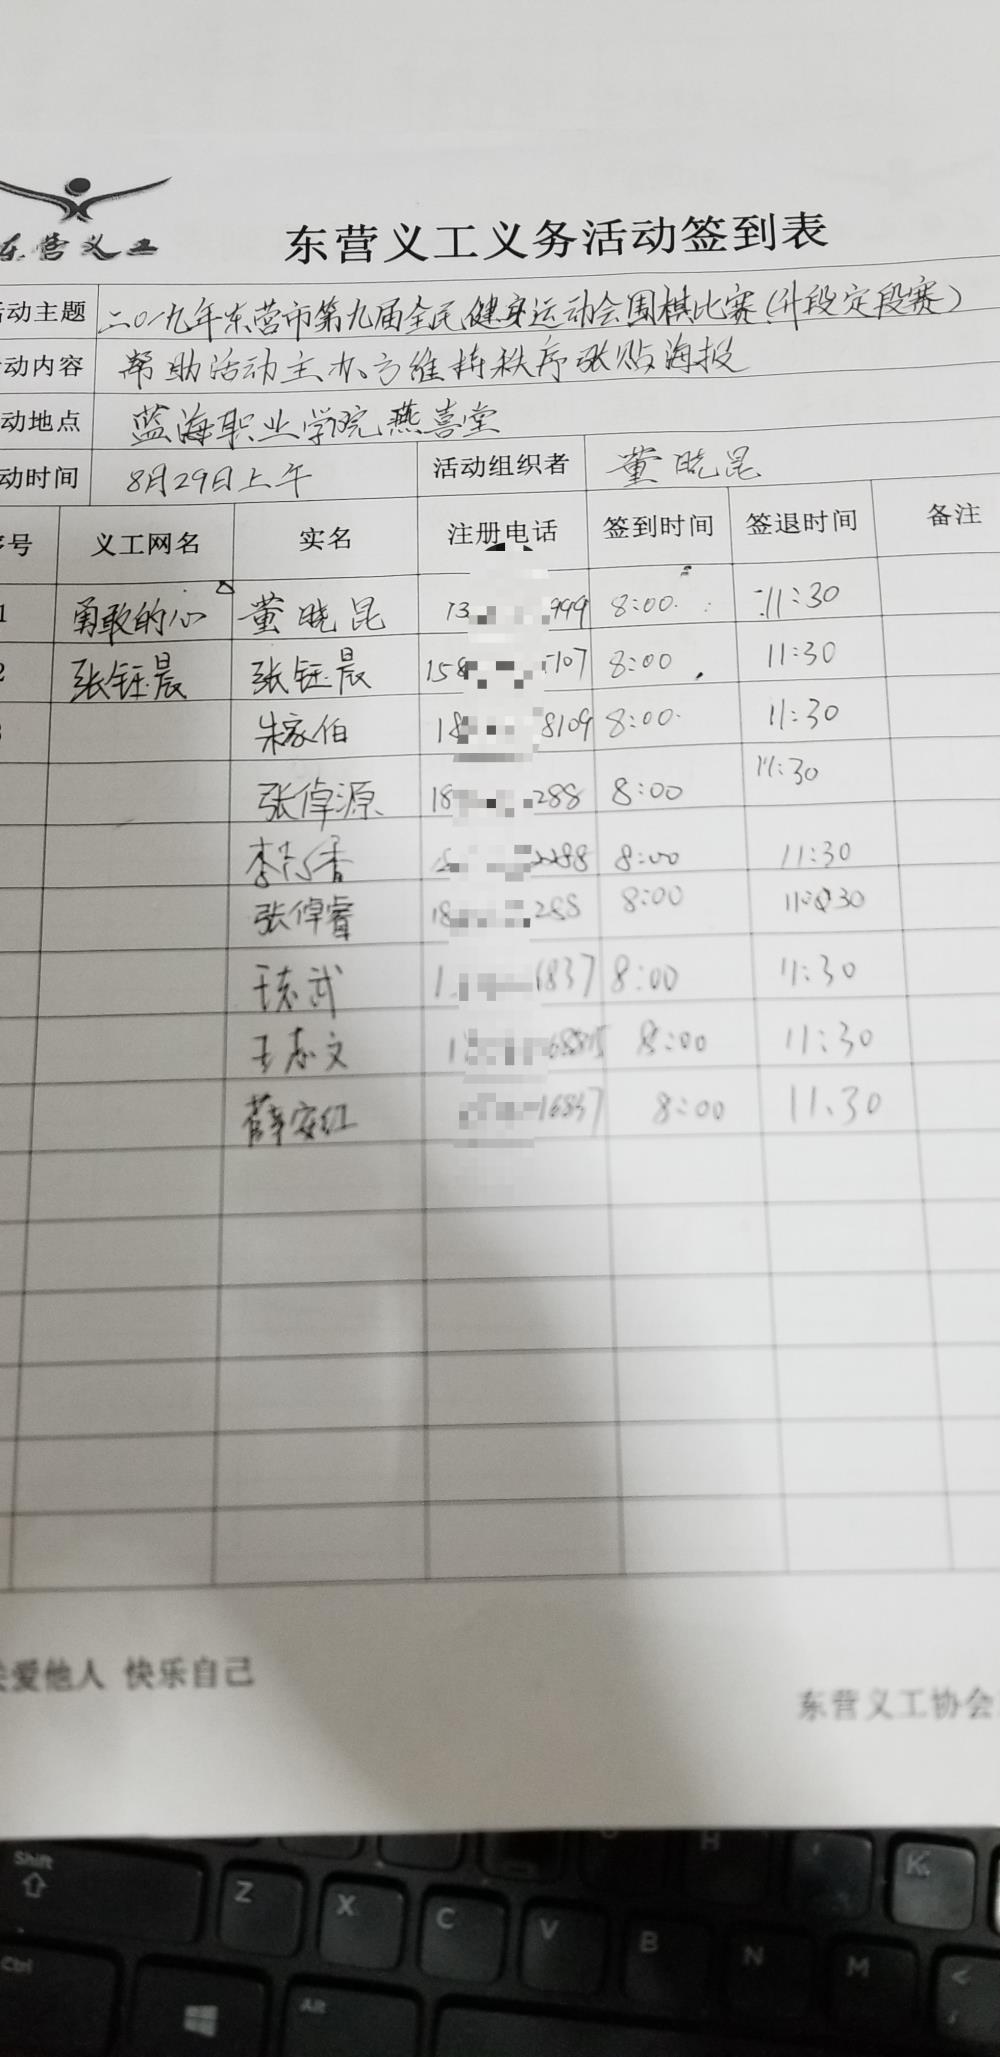 东营义工
东营义工义务活动签到表
活动主题 二〇一九年东营市第九届全民健身运动会围棋比赛(升段定段赛)
动内容 帮助活动主办方维持秩序张贴海报
动地点 蓝海职业学院燕喜堂
动时间 8月29日上午 活动组织者 董晓昆
序号 义工网名 实名 注册电话 签到时间 签退时间 备注
1 勇敢的心 董晓昆 13 999 8:00 11:30
2 张钰晨 张钰晨 158 5107 8:00 11:30
3 朱家伯 18 8109 8:00 11:30
张倬源 18 288 8:00 11:30
李 香 2288 8:00 11:30
张倬睿 18 288 8:00 11:30
王志武 1 6837 8:00 11:30
王志文 1 8:00 11:30
薛安红 16837 8:00 11.30
关爱他人 快乐自己
东营义工协会
Shift Z X C V B N M K <
Ctrl Alt H